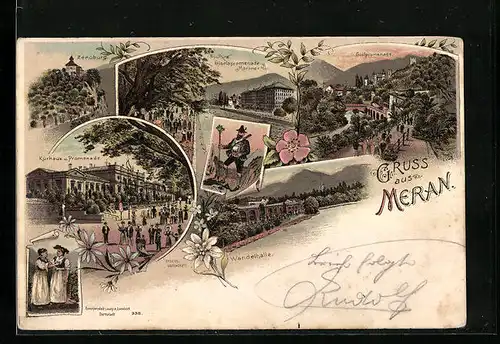 Zenoburg
Giselapromenade u.
Meranerhof
Gilfpromenade
Kurhaus u. Promenade
GRUSS
aus
MERAN.
Wandelhalle.
Brief folgt
Rudolf